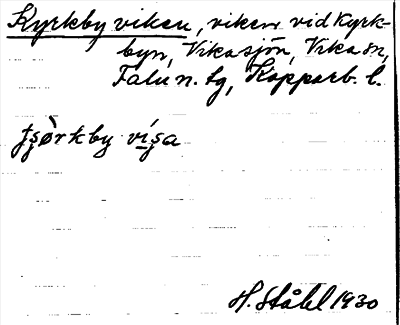 Kyrkby viken, viken vid Kyrk-
byn, Vikasjön, Vika sn,
Falu n. tg, Kopparb. l.
tşòrkby víşa
H. Ståhl 1930